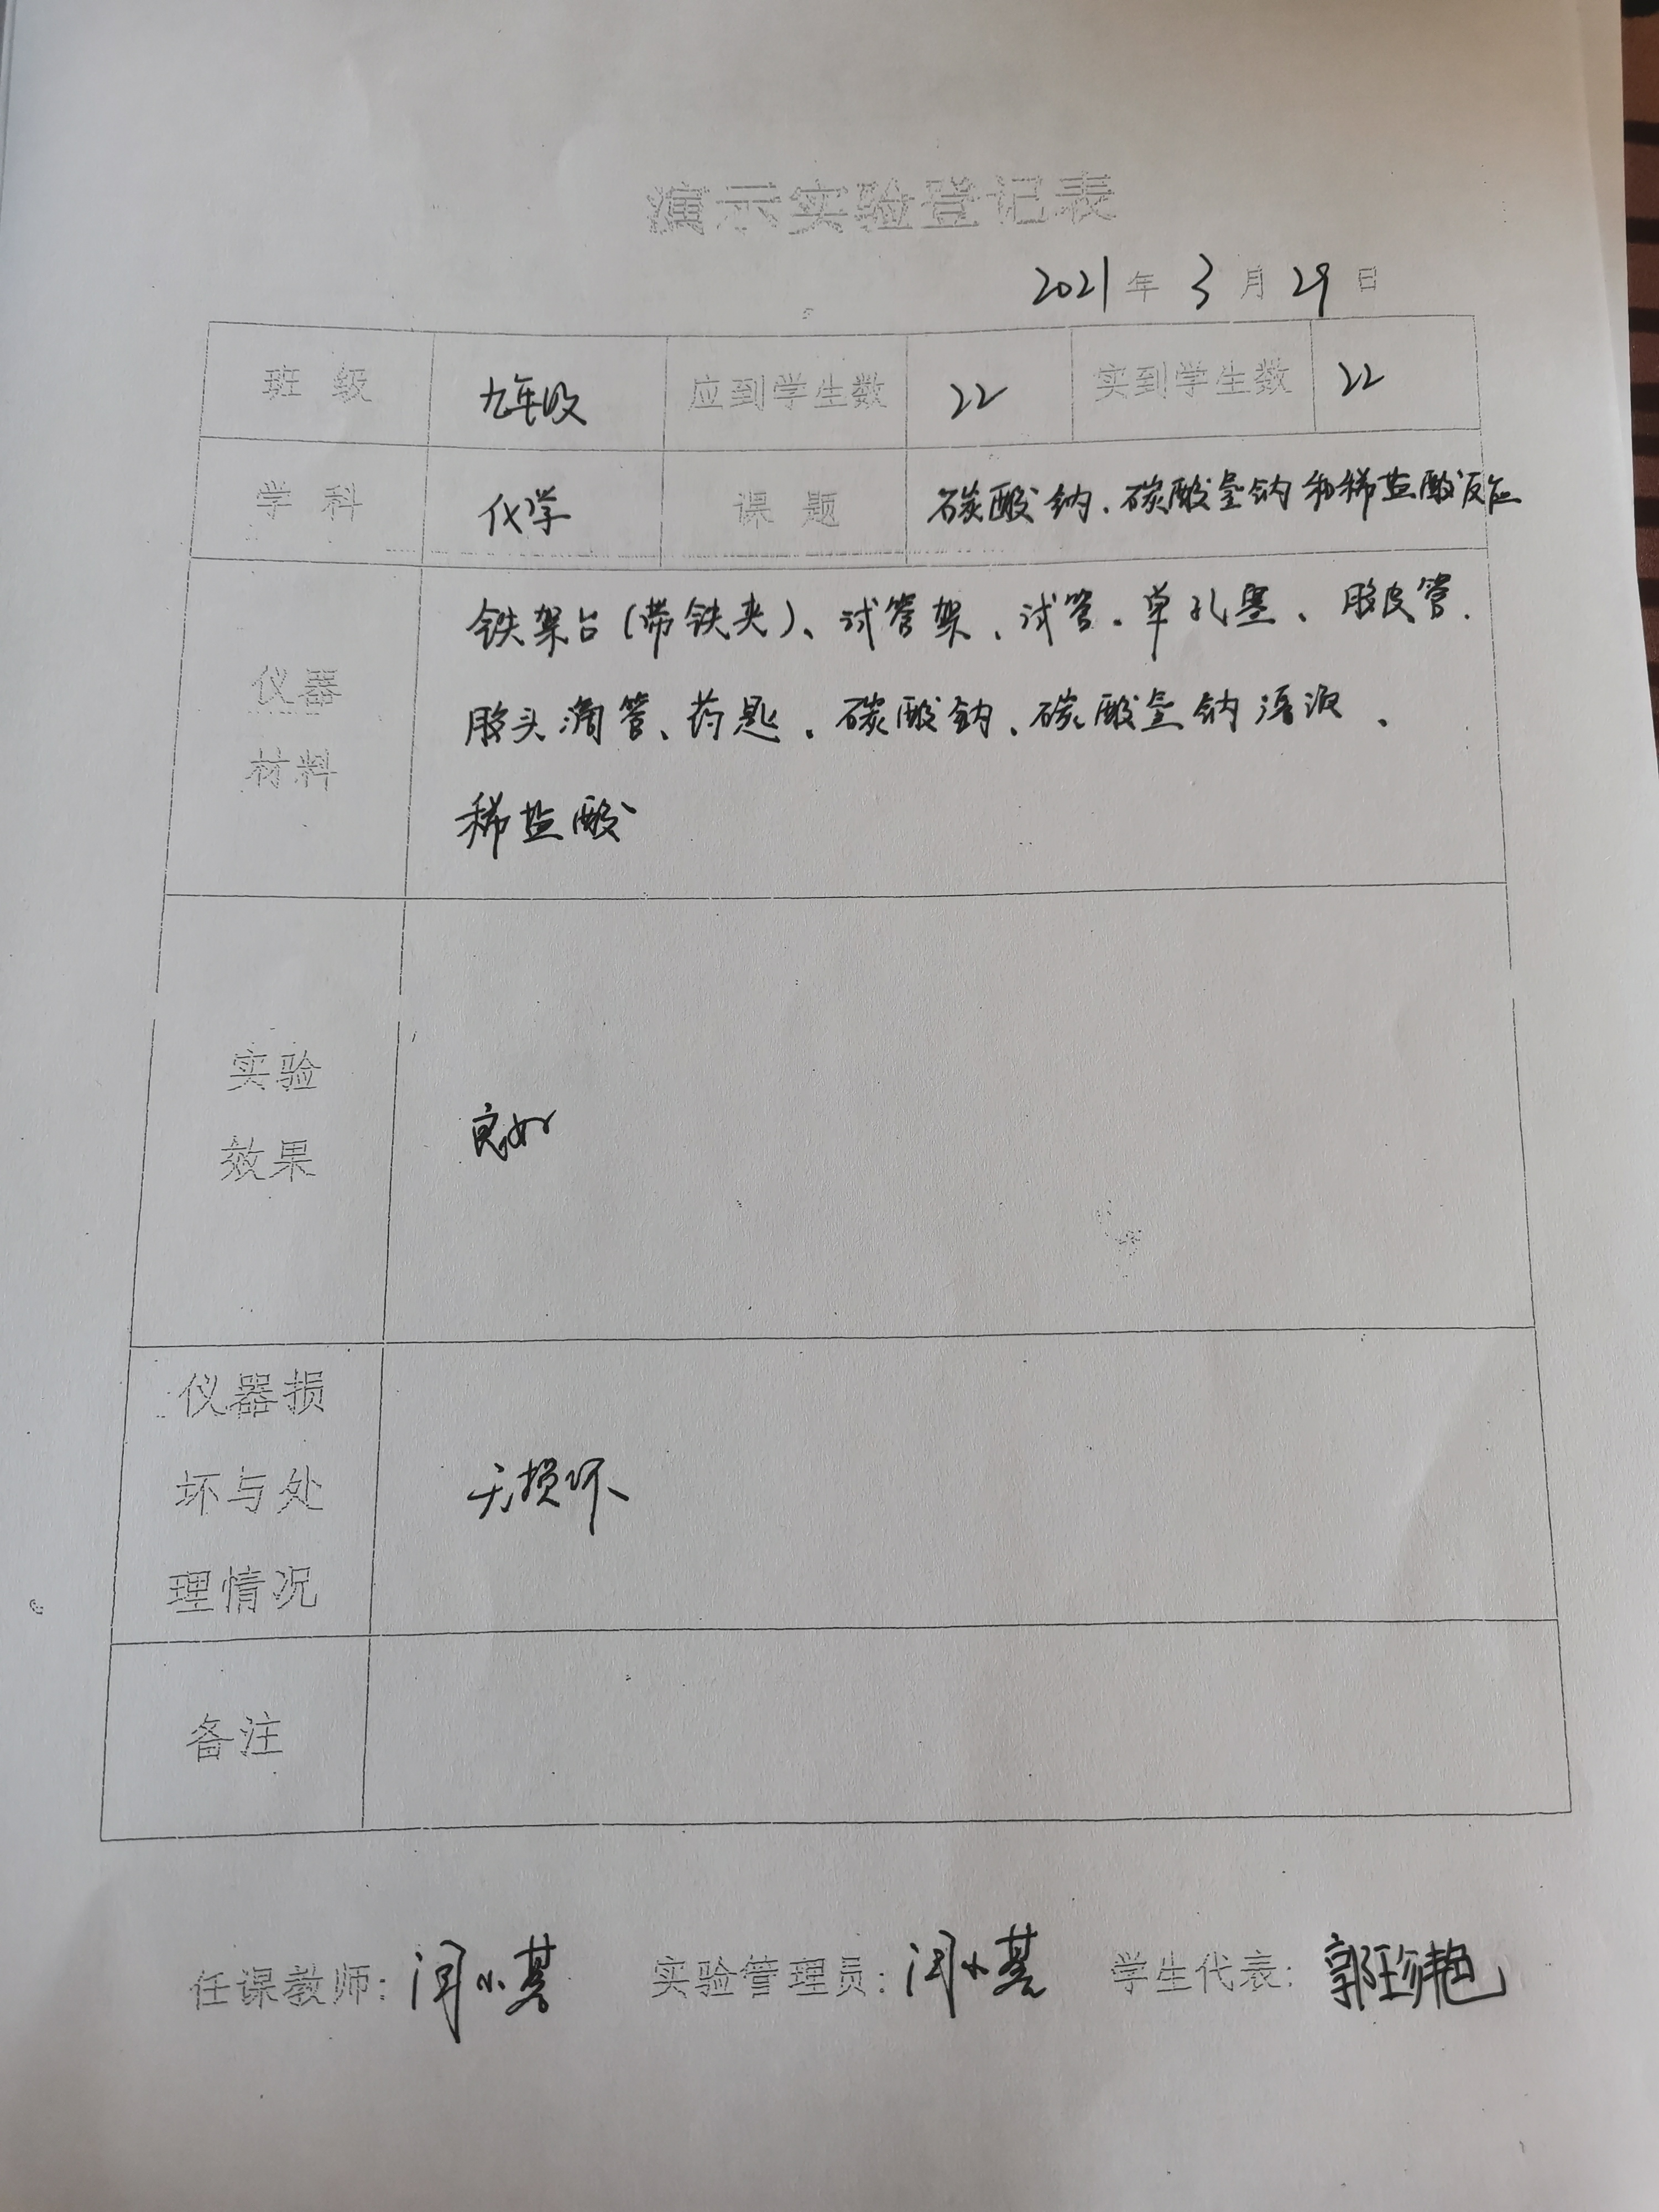 演示实验登记表
2021年3月29日
班级 九年级 应到学生数 22 实到学生数 22
学科 化学 课题 碳酸钠、碳酸氢钠和稀盐酸反应
仪器材料
铁架台(带铁夹)、试管架、试管、单孔塞、胶皮管、
胶头滴管、药匙、碳酸钠、碳酸氢钠溶液、
稀盐酸
实验
效果
良好
仪器损
坏与处
理情况
无损坏
备注
任课教师: 闫小 实验管理员: 闫小 学生代表: 郭珍艳